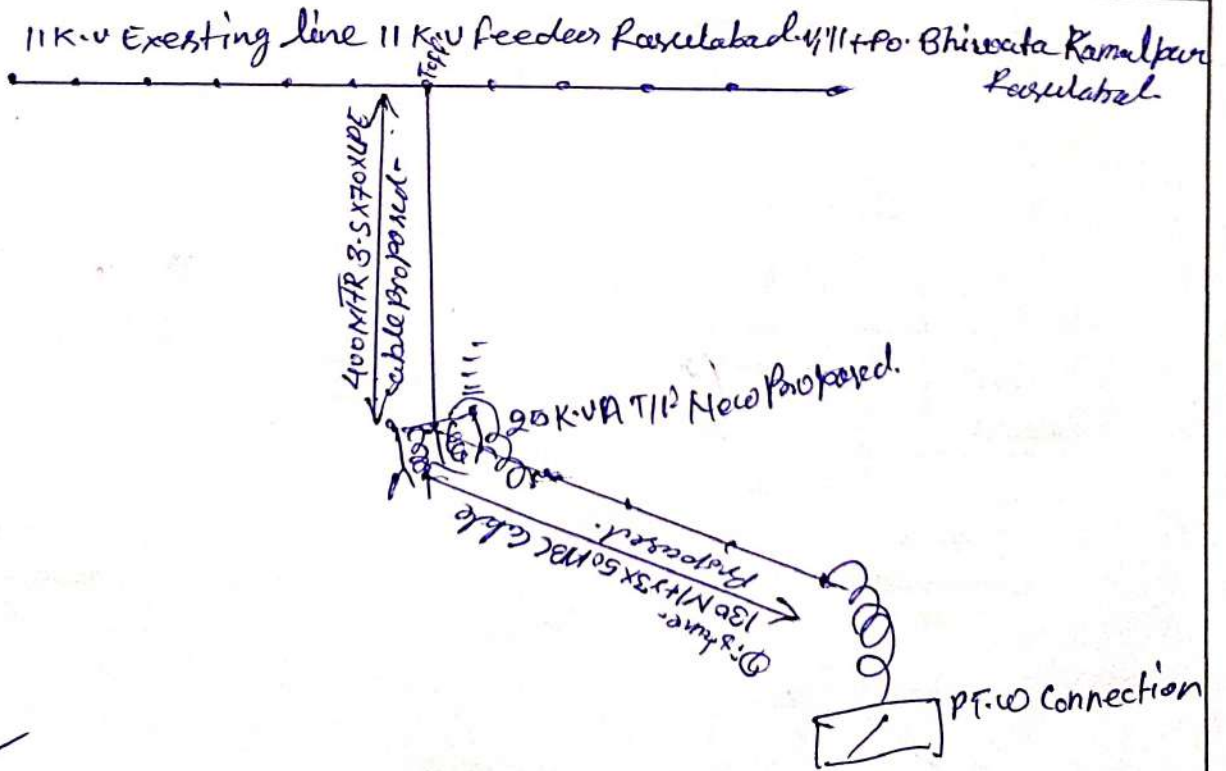 11 K.V Exesting line 11 K.V feeder Rasulabad. Vill+Po. Bhiwata Kamalpur
Rasulabad.
400 MTR 3.5X70XLPE
cable proposed.
20 K.VA T/P New Proposed.
Proposed.
130 Mtr 3X50 ABC Cable
Distune.
PT.W Connection